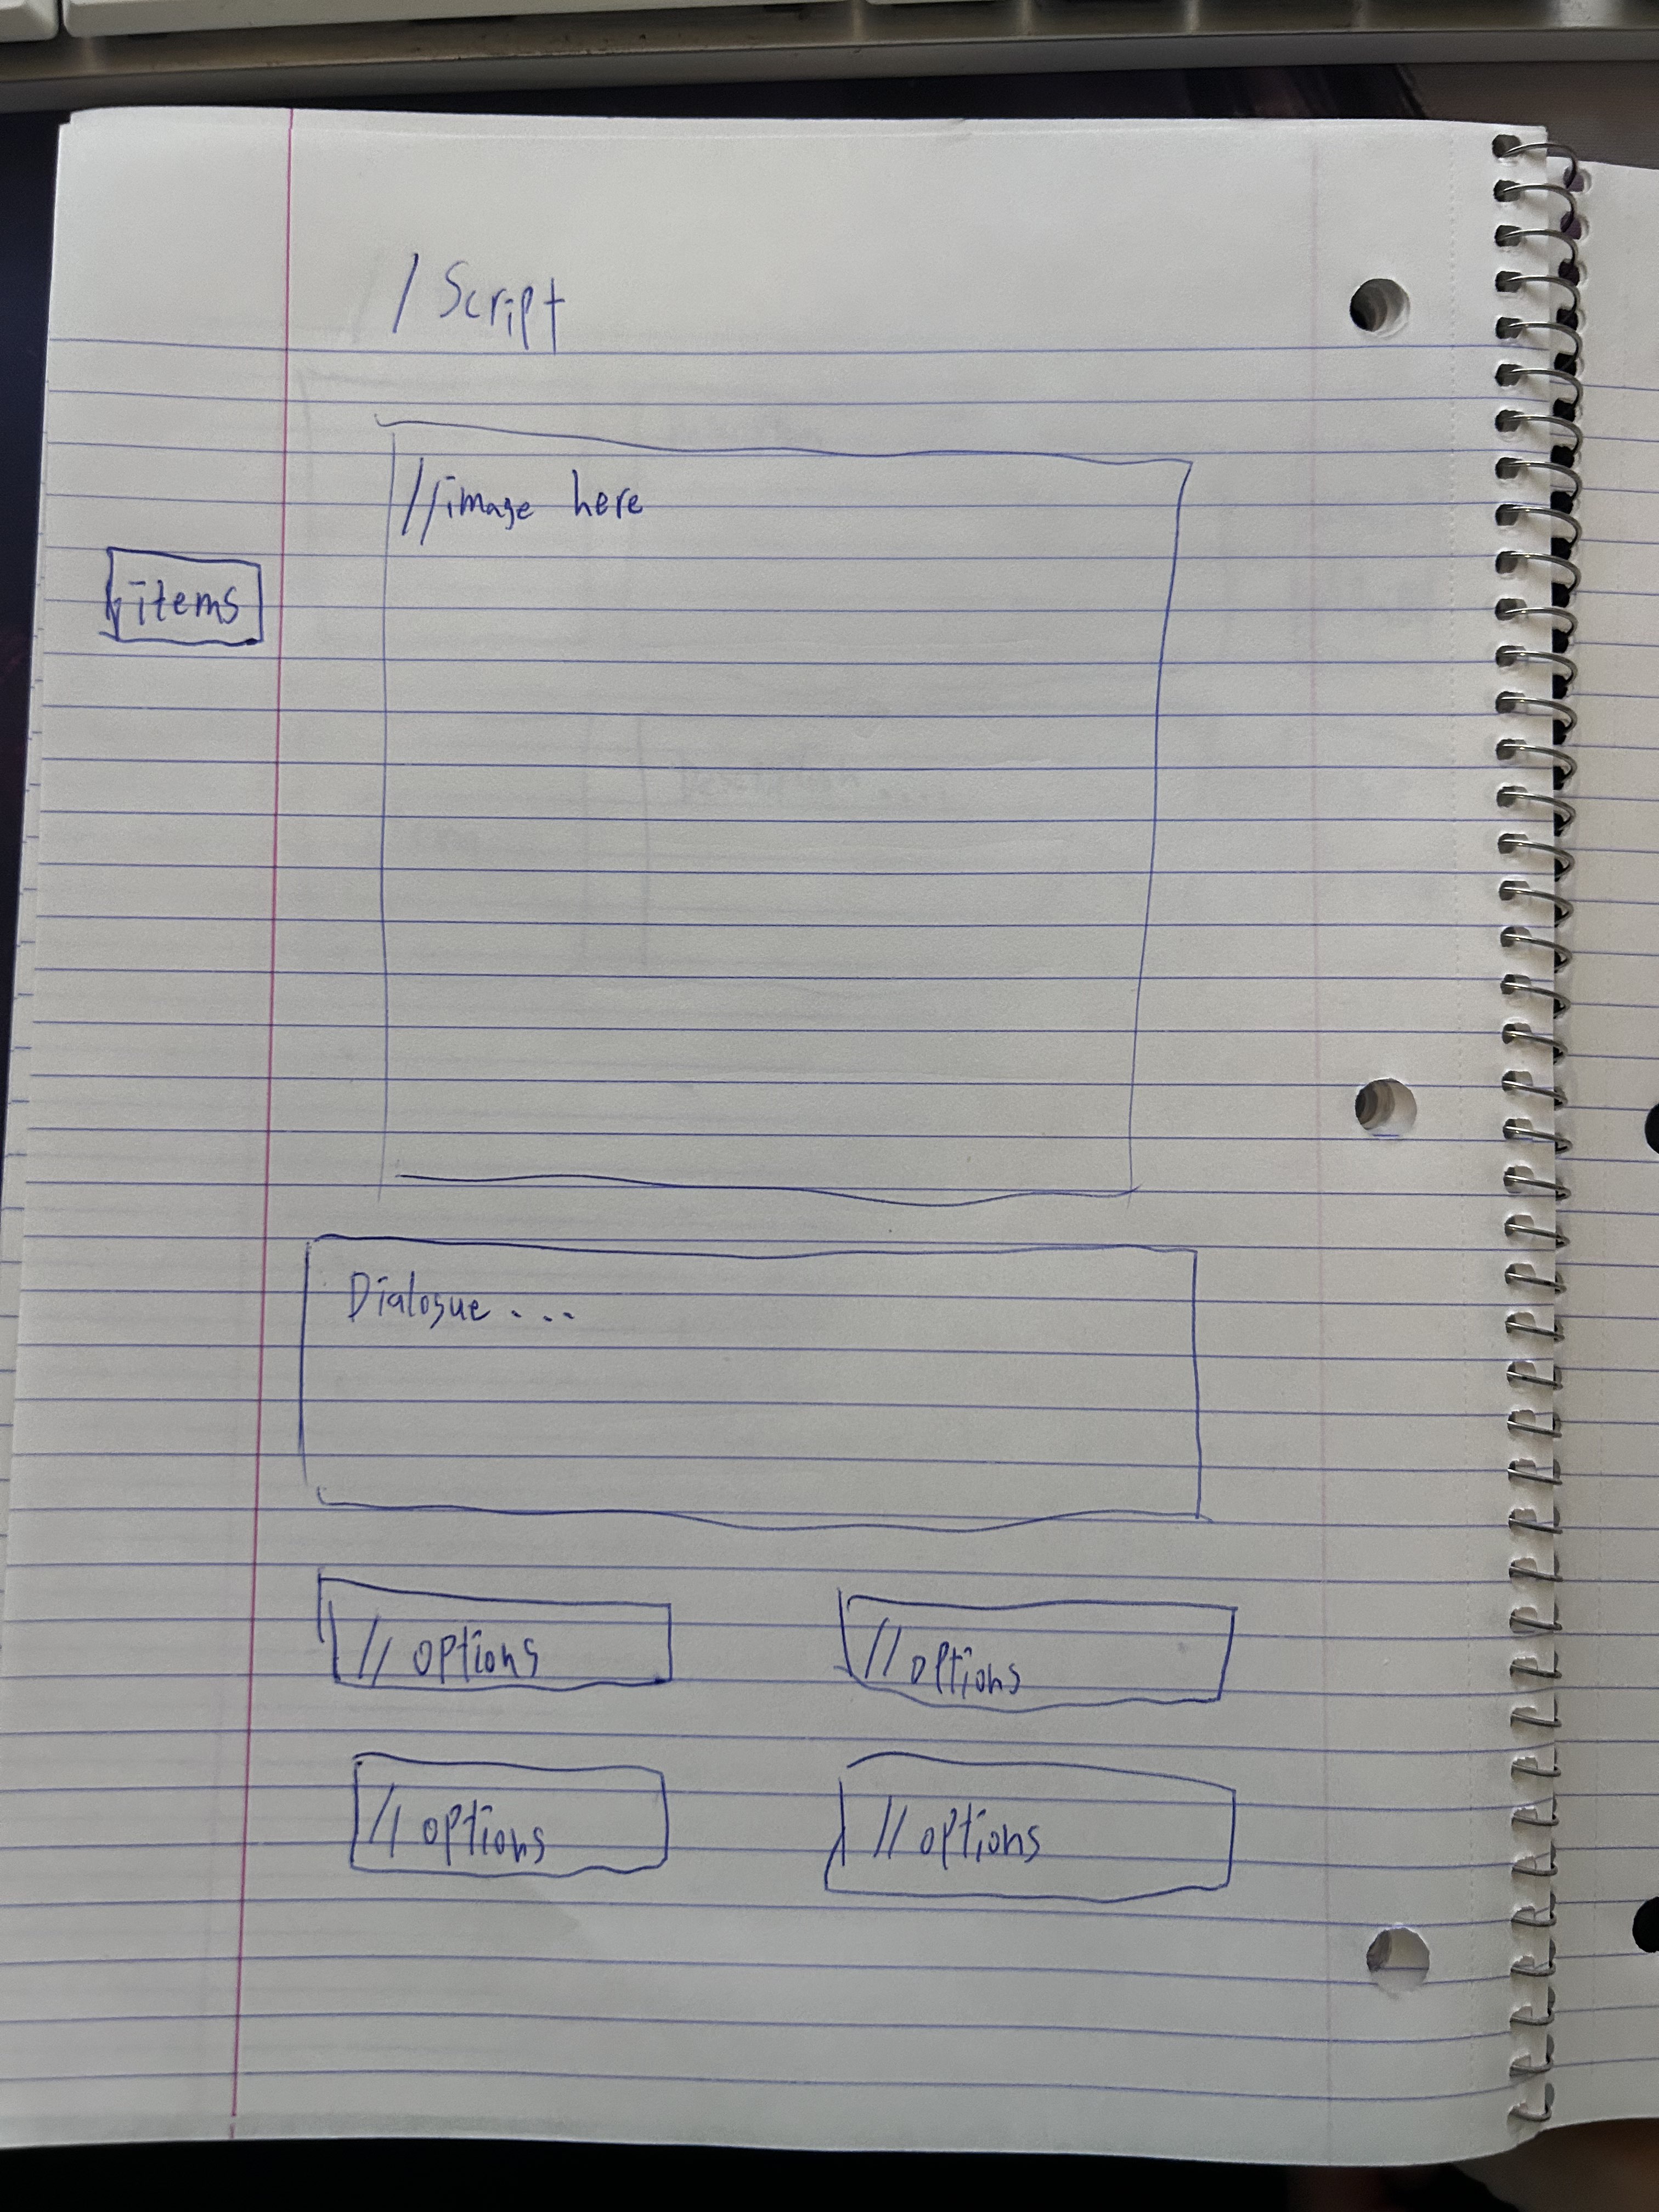 / Script
//image here
items
Dialogue ...
// options
// options
// options
// options